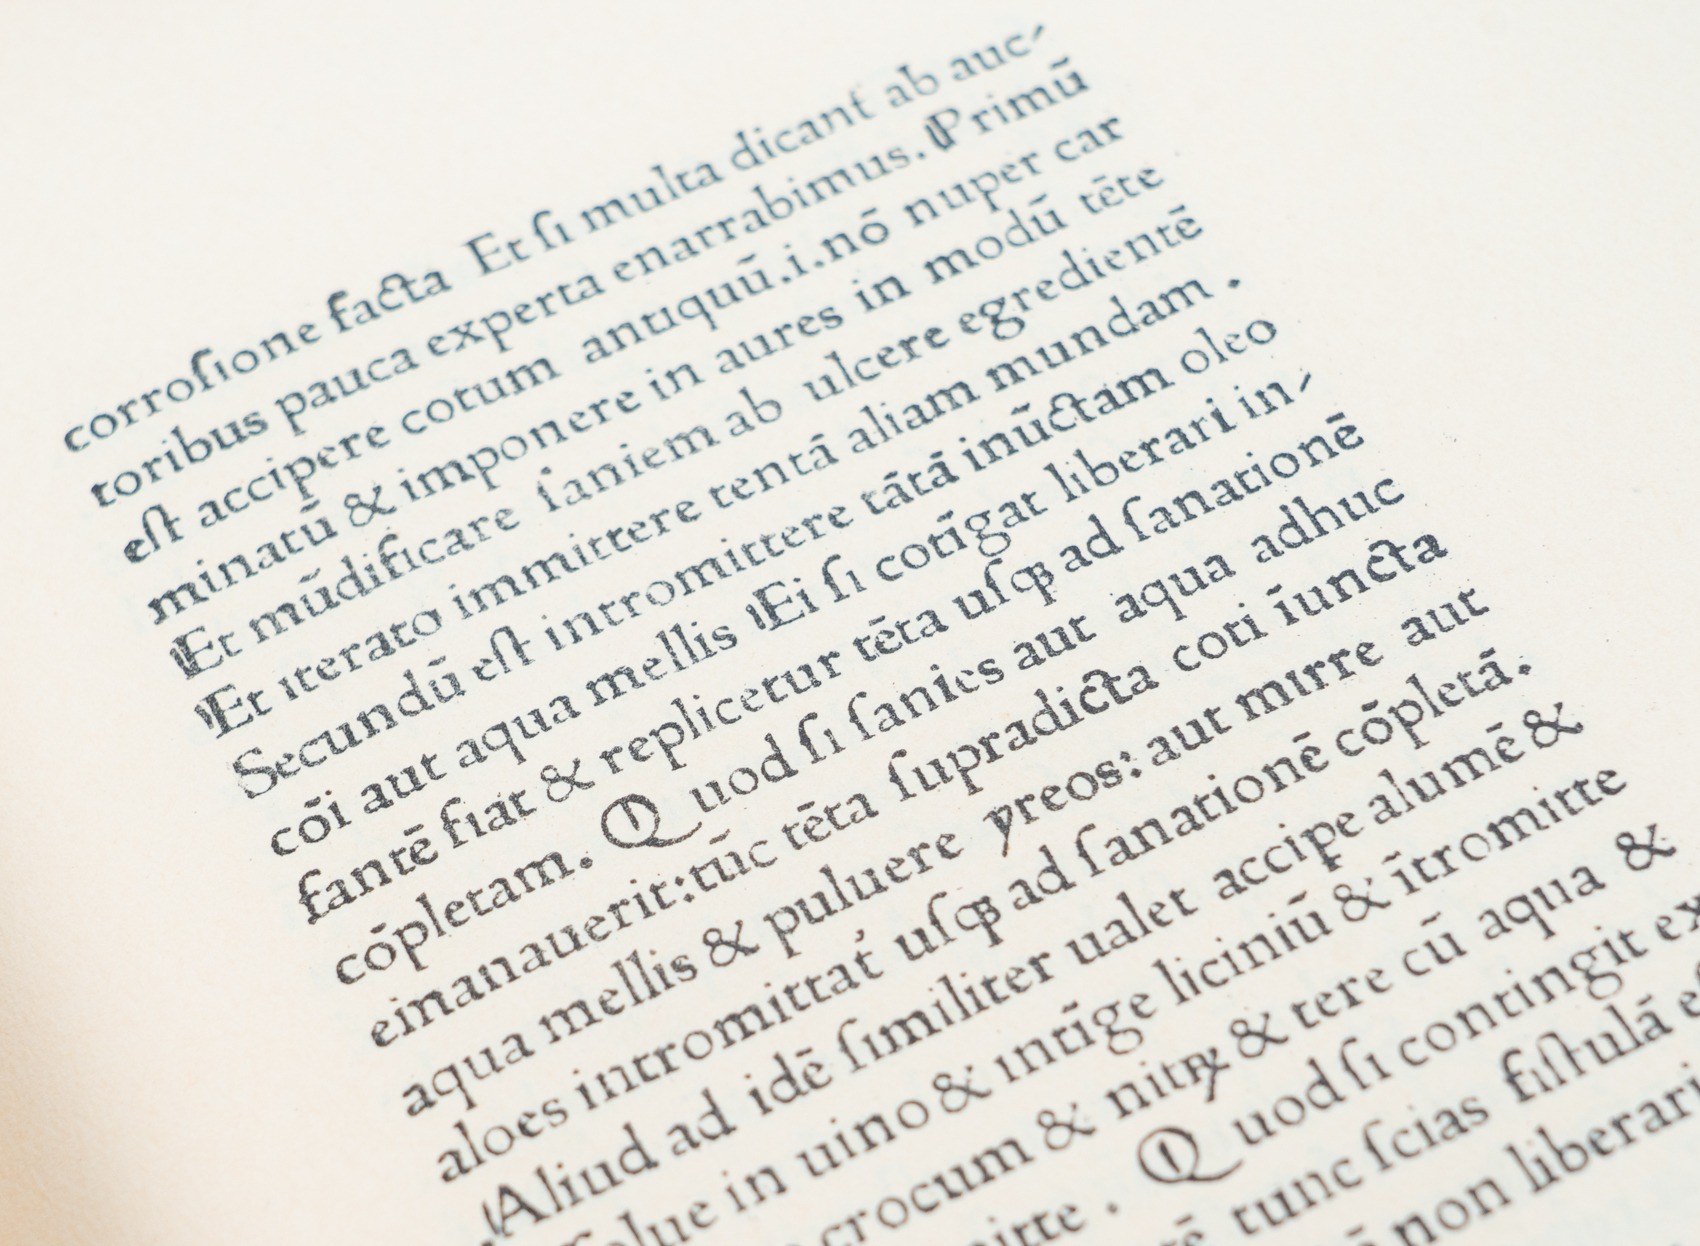 corroſione facta Et ſi multa dicant ab auc-
toribus pauca experta enarrabimus. Primū
eſt accipere cotum antiquū.i.nō nuper car
minatū & imponere in aures in modū tēte
Et mūdificare ſaniem ab ulcere egredientē
Et iterato immittere tentā aliam mundam.
Secundū eſt intromittere tātā inūctam oleo
cōi aut aqua mellis Ei ſi cotīgat liberari in-
fantē fiat & replicetur tēta uſqꝫ ad ſanationē
cōpletam. Quod ſi ſanies aut aqua adhuc
einanauerit: tūc tēta ſupradicta coti īuncta
aqua mellis & puluere yreos: aut mirre aut
aloes intromittat́ uſqꝫ ad ſanationē cōpletā.
Aliud ad idē ſimiliter ualet accipe alumē &
ſolue in uino & intīge liciniū & ītromitte
crocum & nitꝝ & tere cū aqua &
mitte. Quod ſi contingit ex
tunc ſcias fiſtulā
non liberari